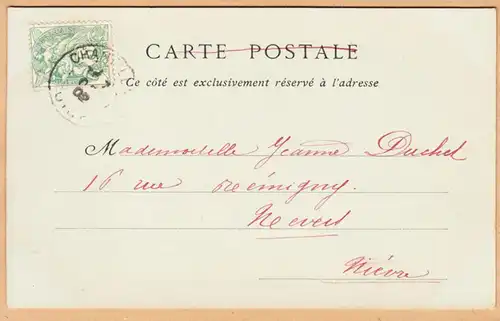 CARTE POSTALE
Ce côté est exclusivement réservé à l'adresse
Mademoiselle Jeanne Duchet
16 rue Rémigny.
Nevers
Nièvre